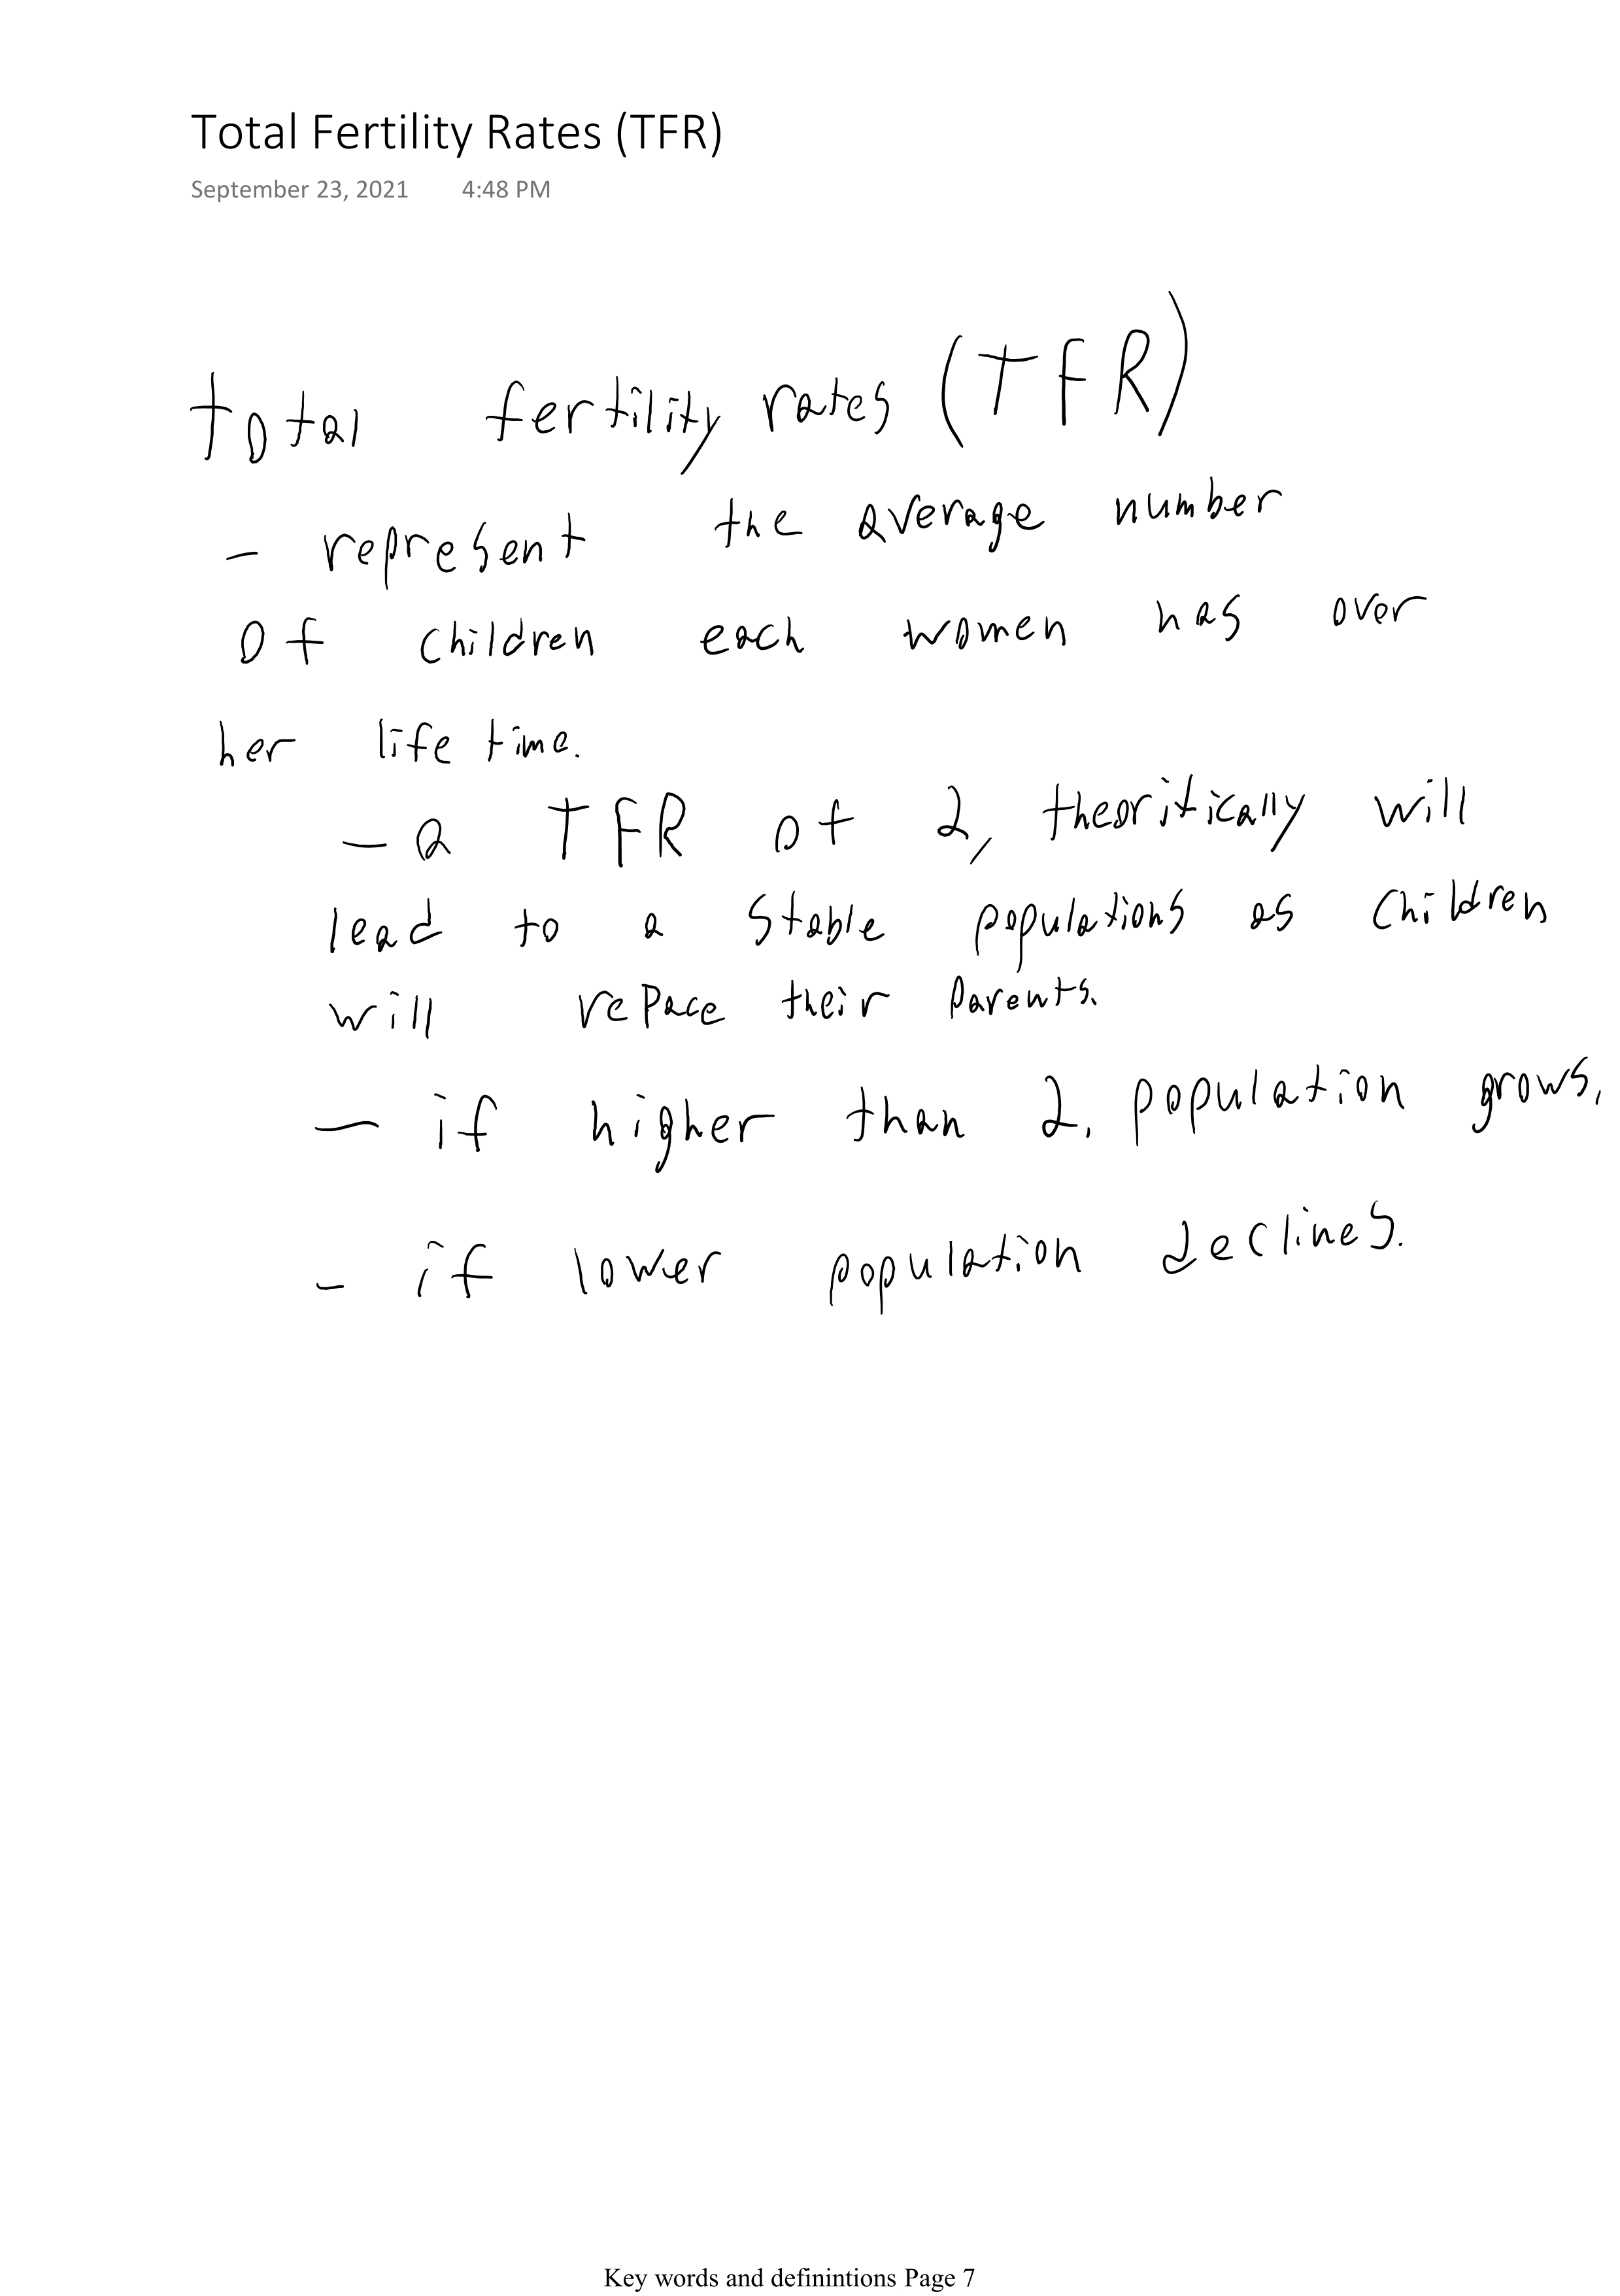 Total Fertility Rates (TFR)
September 23, 2021 4:48 PM
total fertility rates (TFR)
- represent the average number
of children each women has over
her life time.
- a TFR of 2, theoritically will
lead to a stable populations as children
will repace their parents.
- if higher than 2, population grows,
- if lower population declines.
Key words and definintions Page 7